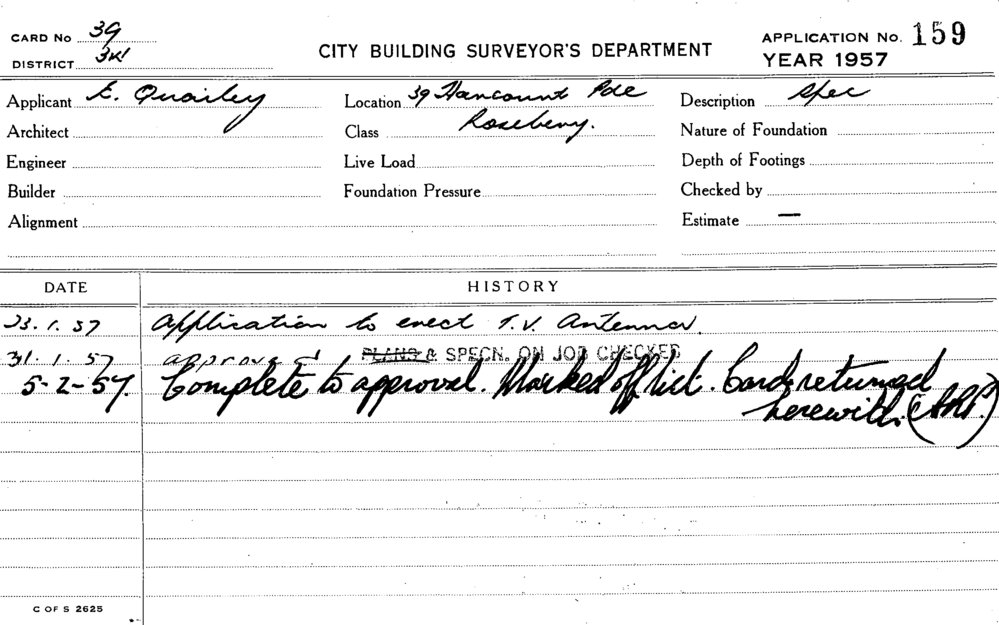 CARD No 39
DISTRICT 3K1
CITY BUILDING SURVEYOR'S DEPARTMENT
APPLICATION No. 159
YEAR 1957
Applicant E. Quailey
Location 39 Harcourt Pde
Description Spec
Architect
Class Rosebery.
Nature of Foundation
Engineer
Live Load
Depth of Footings
Builder
Foundation Pressure
Checked by
Alignment
Estimate —
DATE HISTORY
23.1.57 Application to erect T.V. Antenna.
31.1.57 approved PLANS & SPECN. ON JOB CHECKED
5-2-57. Complete to approval. Marked off list. Card returned
herewith.
C OF S 2625